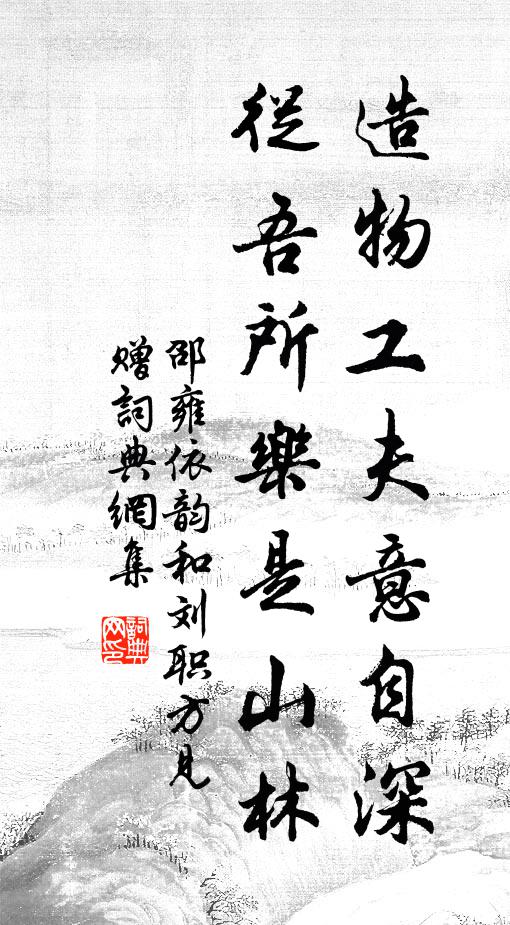 造物工夫意自深
從吾所樂是山林
邵雍依韵和刘职方见
赠詞典網集
詞典
网印